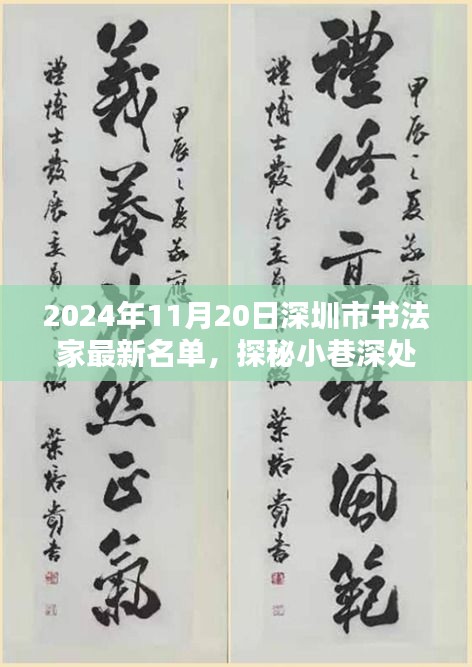 禮修高雅風範
甲辰之夏敬應
禮博士發展委員
葉培貴書
義養浩然正氣
甲辰之夏敬應
禮博士發展委員
葉培貴書
2024年11月20日深圳市书法
家最新名单，探秘小巷深处